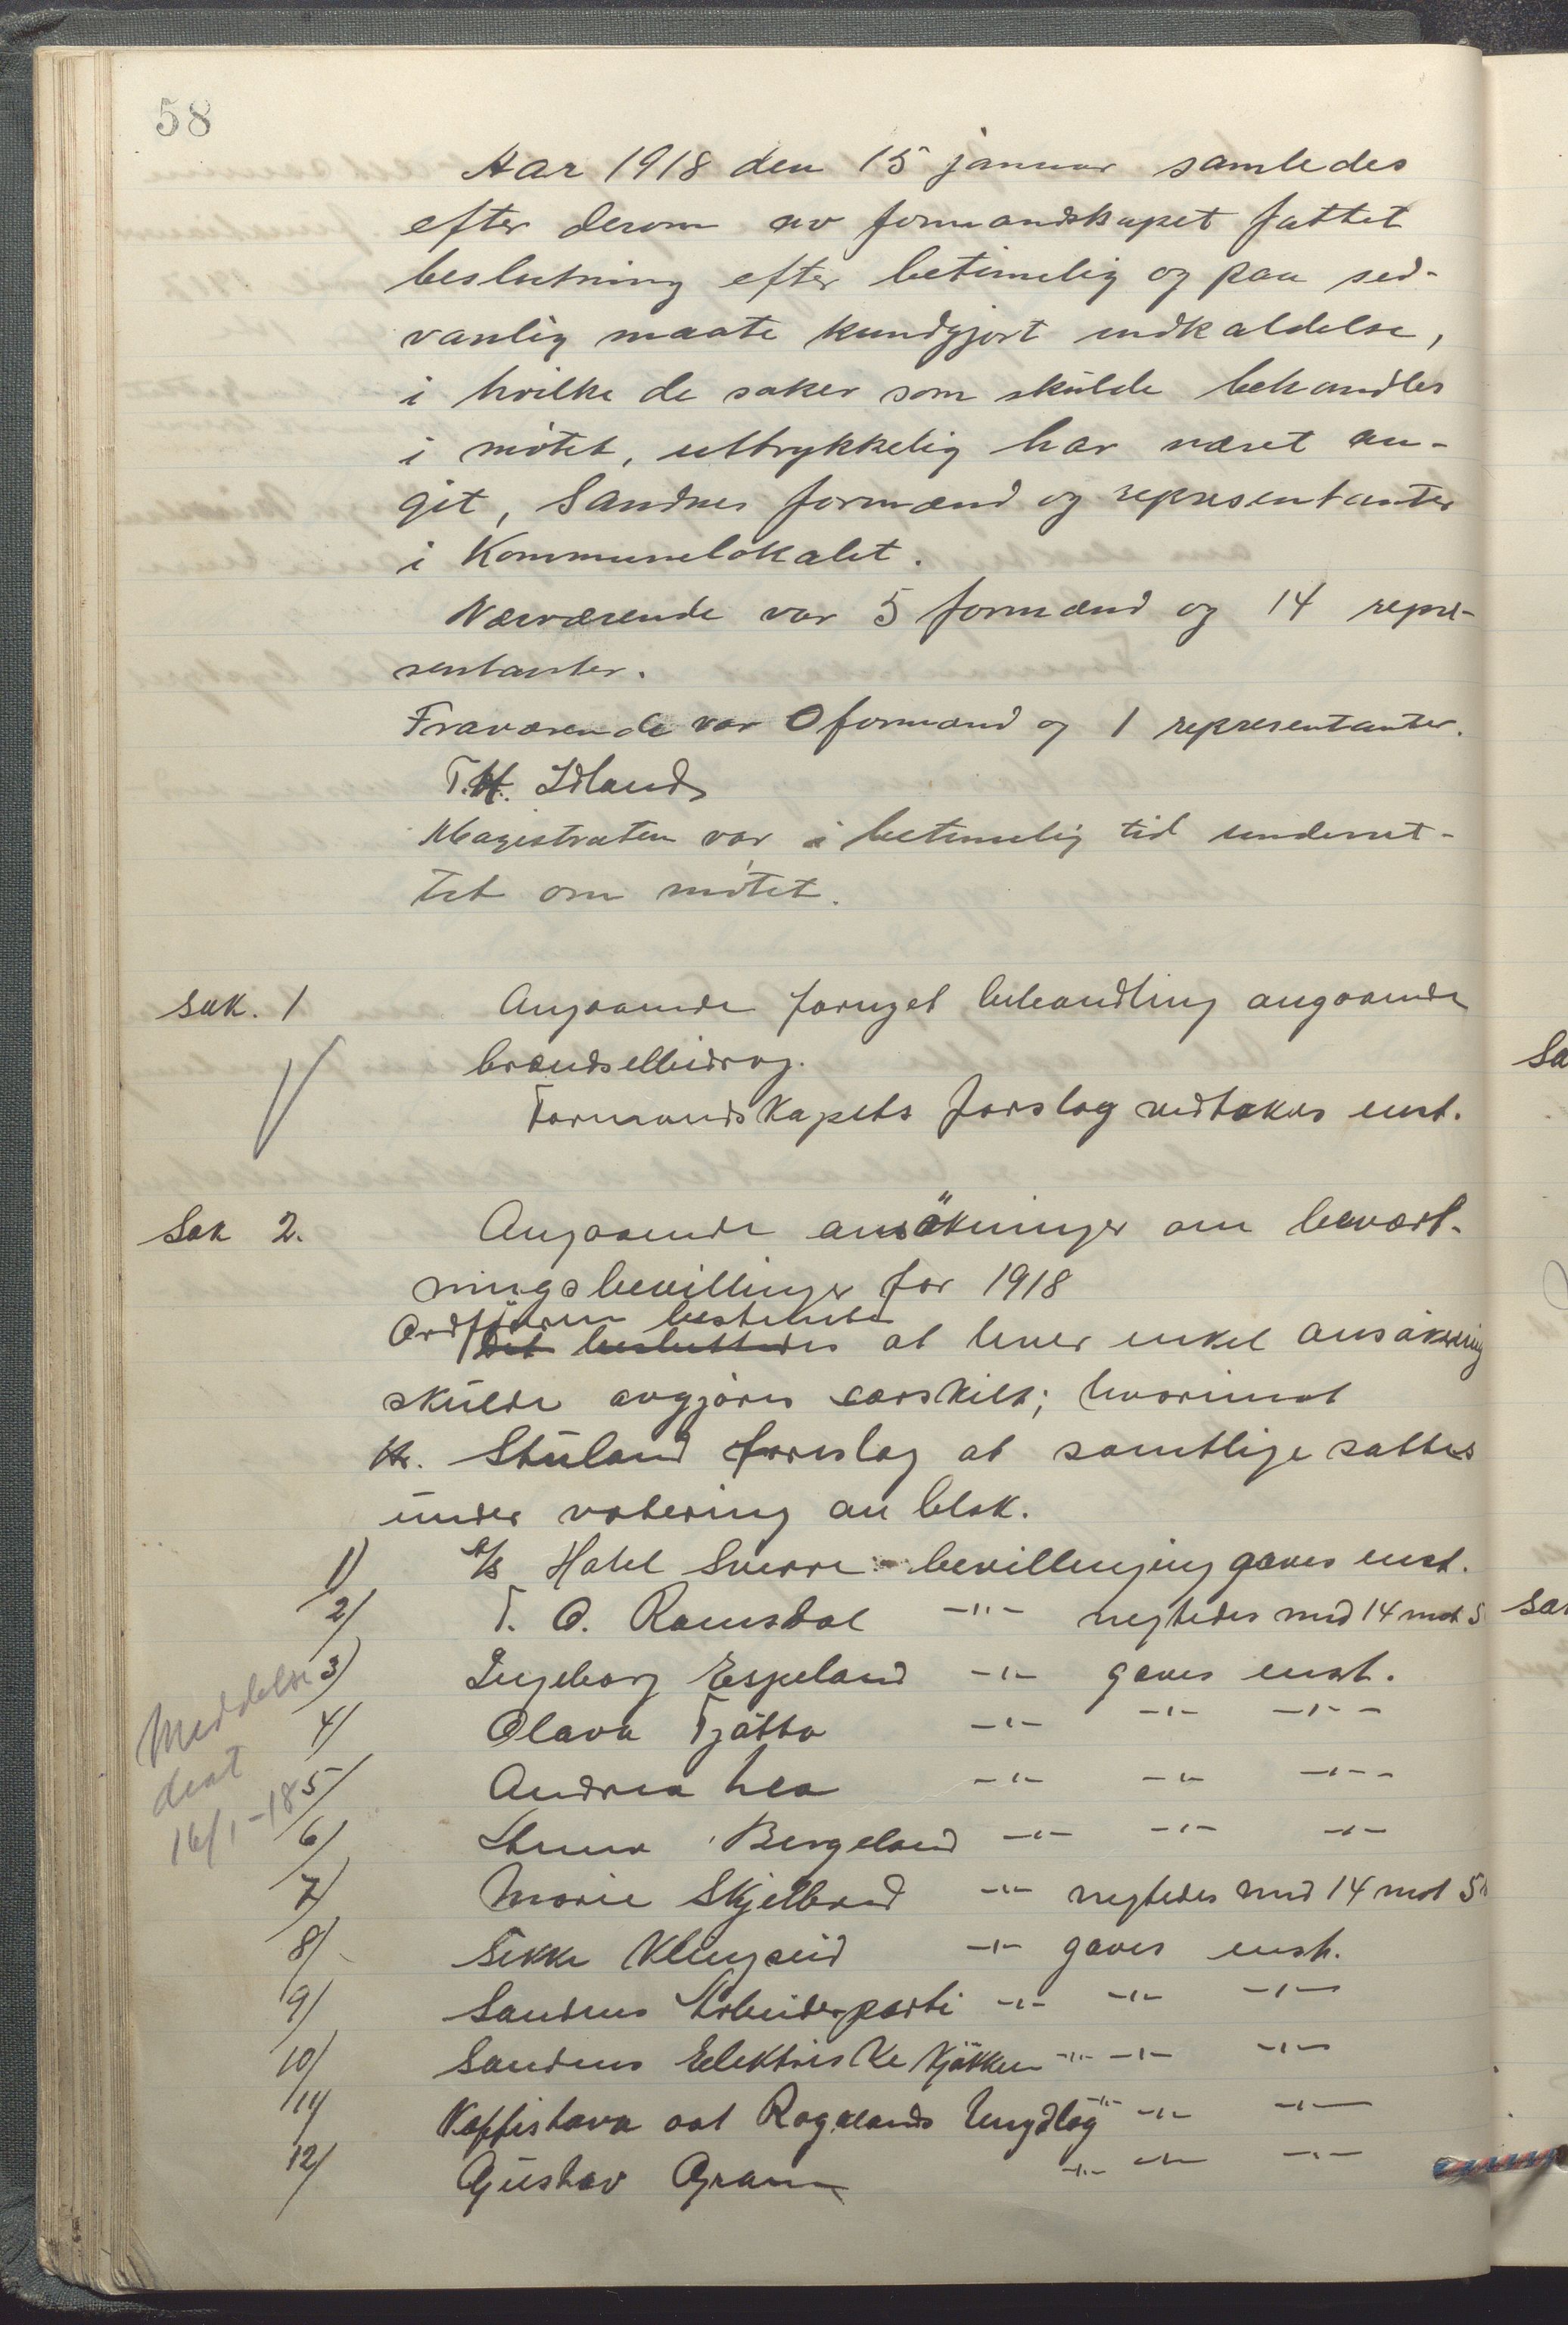 58
Aar 1918 den 15 januar samledes
efter derom av formandskapet fattet
beslutning efter betimelig og paa sed-
vanlig maate kundgjort indkaldelse,
i hvilke de saker som skulde behandles
i møtet, uttrykkelig har været an-
git, Sandnes formænd og representanter
i Kommunelokalet.
Nærværende var 5 formænd og 14 repre-
sentanter.
Fraværende var 0 formænd og 1 representanter.
T.H. Idland
Magistraten var i betimelig tid underret-
tet om møtet.
Sak. 1 Angaaende fornyet behandling angaaende
brændselbidrag.
Formandskapets forslag vedtakes enst.
Sak 2. Angaaende ansökninger om bevært-
ningsbevillinger for 1918
Ordföreren bestemte
Det besluttedes at hver enkel ansökning
skulde avgjöres særskilt; hvorimot
Hr. Stuland foreslog at samtlige sattes
under votering an blok.
1) A/S Hotel Sverre bevillingen gaves enst.
2/ T. O. Ramsdal -"- negtedes med 14 mot 5
3) Ingeborg Espeland -"- gaves enst.
4/ Olava Tjötta -"- -"- -"-
5/ Andrea Lea -"- -"- -"-
6/ Bergeland -"- -"- -"-
7/ Marie Skjelbred -"- negtedes med 14 mot 5
8/ Sekke Klungseid -"- gaves enst.
9/ Sandnes Arbeiderparti -"- -"- -"-
10/ Sandnes Elektriske Kjökken -"- -"- -"-
11/ Kaffistova aat Rogalands Ungdlag -"- -"- -"-
12/ Gustav Gram -"- -"- -"-
Meddelse
16/1-18